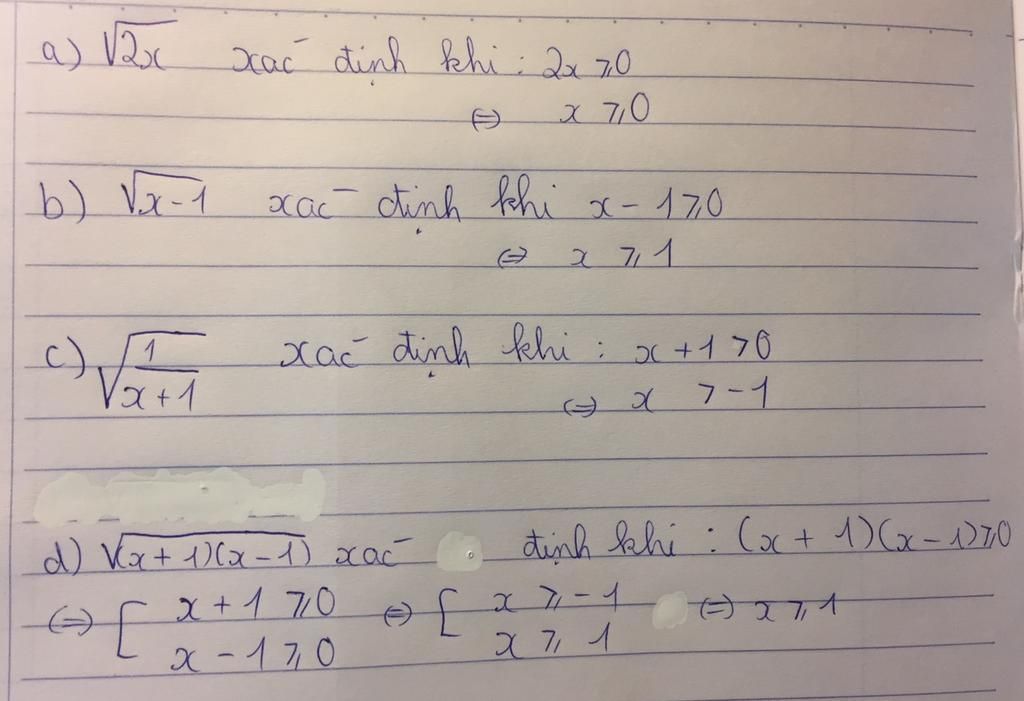 a) √2x xác định khi : 2x ⩾ 0
⇔ x ⩾ 0
b) √x-1 xác định khi x - 1 ⩾ 0
⇔ x ⩾ 1
c) √1/x+1 xác định khi : x + 1 > 0
⇔ x > -1
d) √(x+1)(x-1) xác định khi : (x + 1)(x - 1) ⩾ 0
⇔ [ x + 1 ⩾ 0 ⇔ [ x ⩾ -1 ⇔ x ⩾ 1
x - 1 ⩾ 0 x ⩾ 1